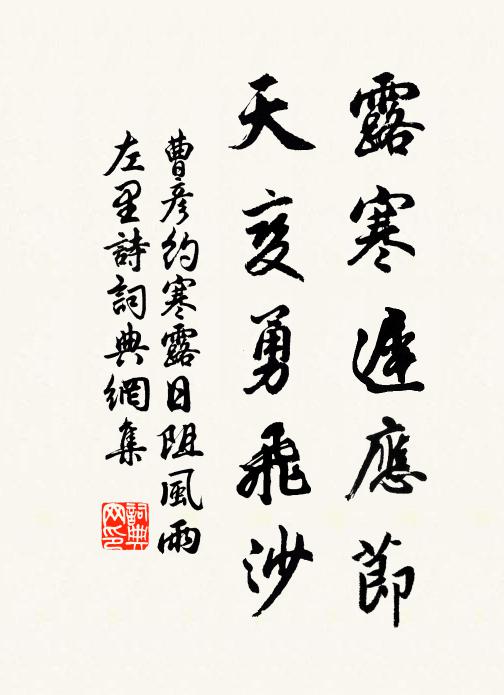 露寒遲應節
天変勇飛沙
曹彦約寒露日阻風雨
左里詩詞典網集
詞典
网印